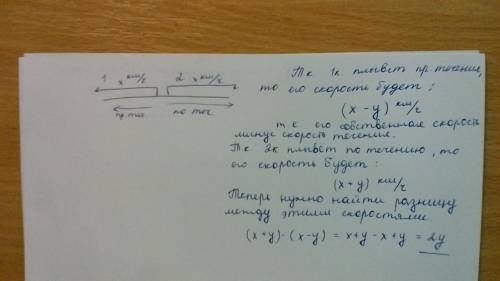 1 x км/ч 2 x км/ч
пр. теч. по теч.
Тк 1к плывет пр. течения,
то его скорость будет:
(x - y) км/ч
т е его собственная скорость
минус скорость течения.
Тк 2к плывет по течению, то
его скорость будет:
(x+y) км/ч
Теперь нужно найти разницу
между этими скоростями.
(x+y)-(x-y) = x+y-x+y = 2y